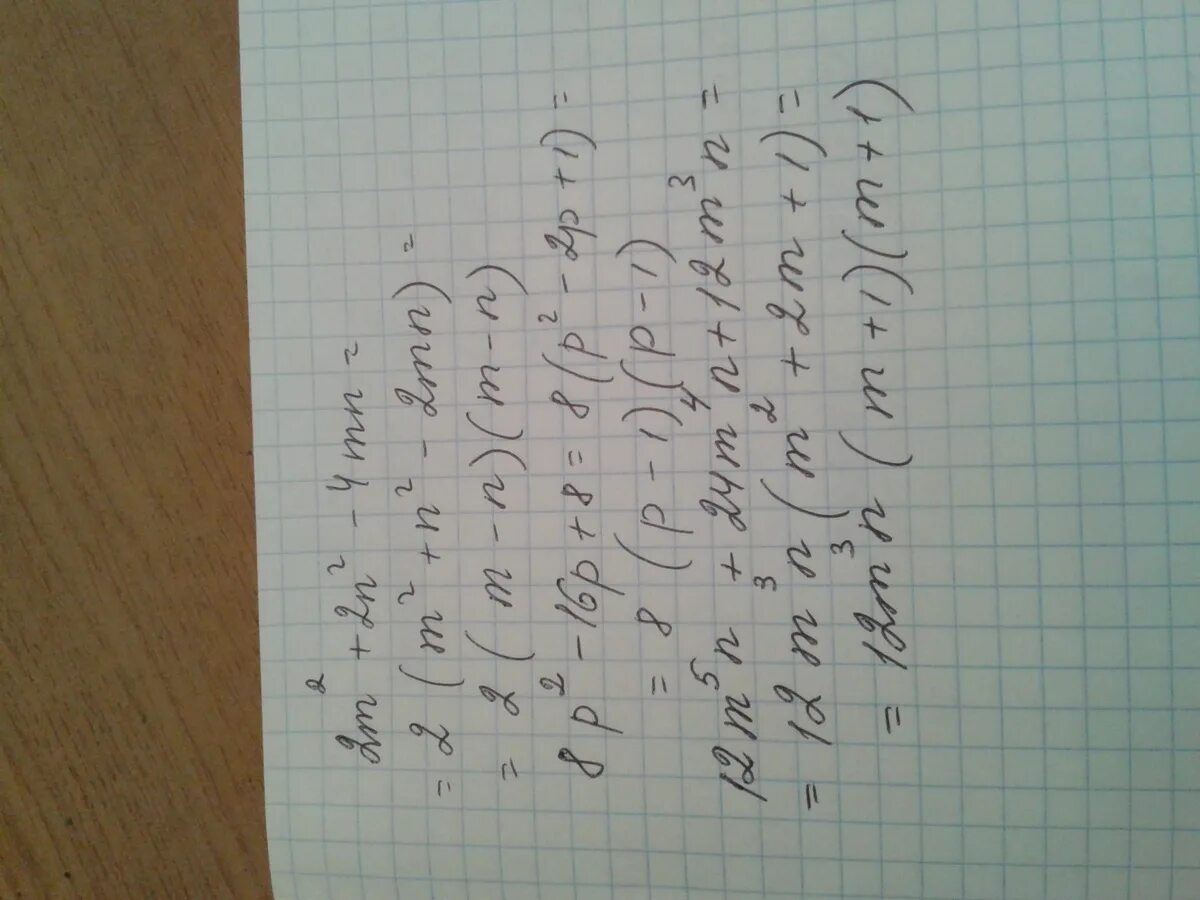 2m² + 2n² - 4mn =
= 2(m² + n² - 2mn) =
= 2(m - n)(m - n)
8p² - 16p + 8 = 8(p² - 2p + 1) =
= 8(p - 1)(p - 1)
12m⁵n + 24m⁴n + 12m³n =
= 12m³n(m² + 2m + 1) =
= 12m³n(m + 1)(m + 1)